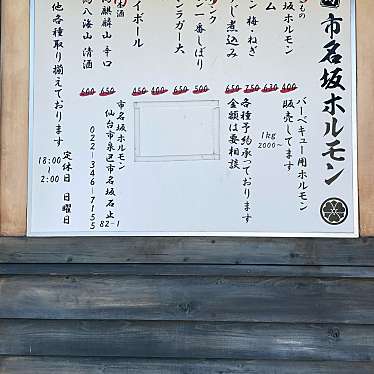 市名坂ホルモン
バーベキュー用ホルモン
販売してます
1kg
2000~
各種予約承っております
金額は要相談
もの
坂ホルモン
400
ム
630
ン 梅 ねぎ
750
し煮込み
650
ンク
ン一番しぼり
500
ンラガー大
650
400
イボール
450
酒
麒麟山 辛口
650
八海山 清酒
600
他各種取り揃えております
市名坂ホルモン
仙台市泉区市名坂石止
82-1
022-346-7155
定休日 日曜日
18:00
~
2:00